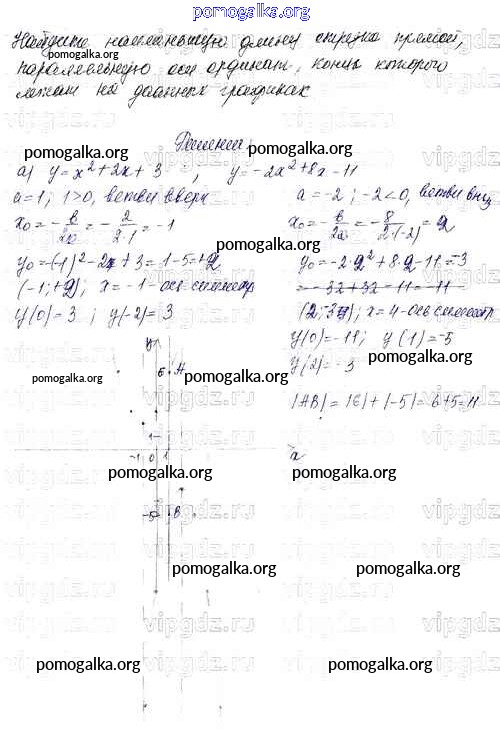 pomogalka.org
Найдите наименьшую длину отрезка прямой,
pomogalka.org
параллельную оси ординат, концы которого
лежат на данных графиках
vipgdz.ru vipgdz.ru vipgdz.ru
Решение:
pomogalka.org pomogalka.org
а) y = x² + 2x + 3 ; y = -2x² + 8x - 11
a = 1; 1 > 0, ветви вверх a = -2; -2 < 0, ветви вниз
x₀ = -в/2a = -2/2·1 = -1 x₀ = -в/2a = -8/2·(-2) = 2
y₀ = (-1)² - 2 + 3 = 1 - 5 = +2 y₀ = -2·2² + 8·2 - 11 = -3
(-1; +2); x = -1 - ось симметр = -32 + 32 - 11 = -11
y(0) = 3 ; y(-2) = 3 (2; -3); x = 4 - ось симметр
y(0) = -11; y(1) = -5
pomogalka.org
y y(2) = -3
6 A
pomogalka.org pomogalka.org
|AB| = |6| + |-5| = 6 + 5 = 11
1
-1 0 1 x
pomogalka.org pomogalka.org
-5 B
pomogalka.org pomogalka.org
vipgdz.ru vipgdz.ru vipgdz.ru
pomogalka.org pomogalka.org